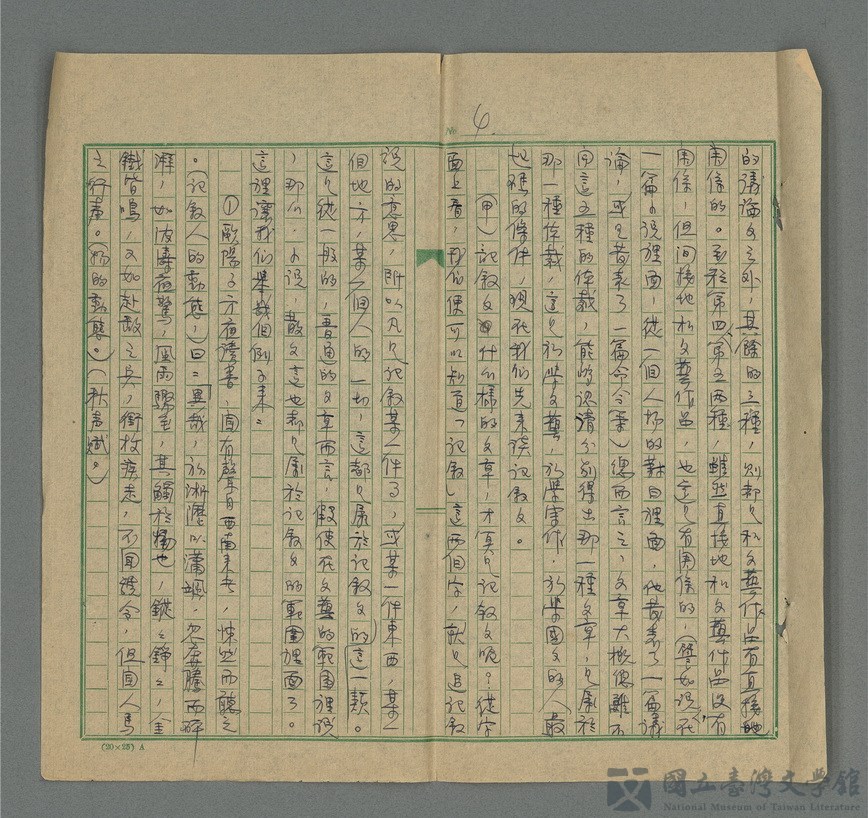 № 4.
的議論文之外，其餘的三種，則都是和文藝作品有直接地
關係的。至於第四、第五兩種，雖然直接地和文藝作品沒有
關係，但間接地和文藝作品，也定是有關係的，（譬如說，在
一篇小說裡面，從一個人物的對白裡面，他發表了一番議
論，或是發表了一篇命令案）總而言之，文章大概總離不
開這五種的体裁，能夠認清分別得出那一種文章，是屬於
那一種体裁，這是初學文藝，初學寫作，初學國文的人最
起碼的條件，現在我們先來談記敘文。
（甲）記敘文 什么樣的文章，才真是記敘文呢？從字
面上看，我們便可以知道「記敘」這兩個字，就是追記敘
說的意思，所以凡是記敘某一件事，或某一件東西，某一
個地方，某一個人的一切，這都是屬於記敘文的這一類。
這是從一般的，普通的文章而言，假使在文藝的範圍裡說
，那么，小說，散文這也都是屬於記敘文的範圍裡面了。
這裡讓我們舉幾個例子來：
①歐陽子方夜讀書，聞有聲自西南來者，悚然而聽之
。（記敘人的動態，）曰：「異哉，初淅瀝以瀟颯，忽奔騰而砰
湃，如波濤夜驚，風雨驟至，其觸於物也，鏦々錚々，金
鐵皆鳴，又如赴敵之兵，銜枚疾走，不聞號令，但聞人馬
之行聲。（物的動態。）（秋聲賦。）
(20×25) A
國立臺灣文學館
National Museum of Taiwan Literature